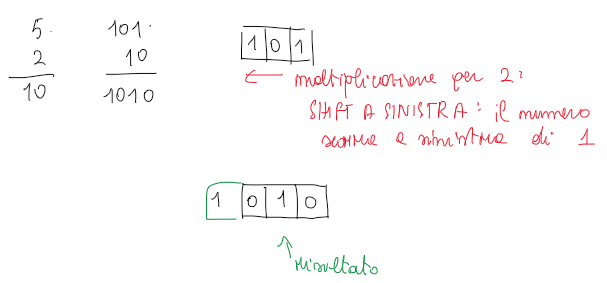 5.
2
10
101.
10
1010
1 0 1
← moltiplicazione per 2:
SHIFT A SINISTRA: il numero
scorre a sinistra di 1
1 0 1 0
risultato